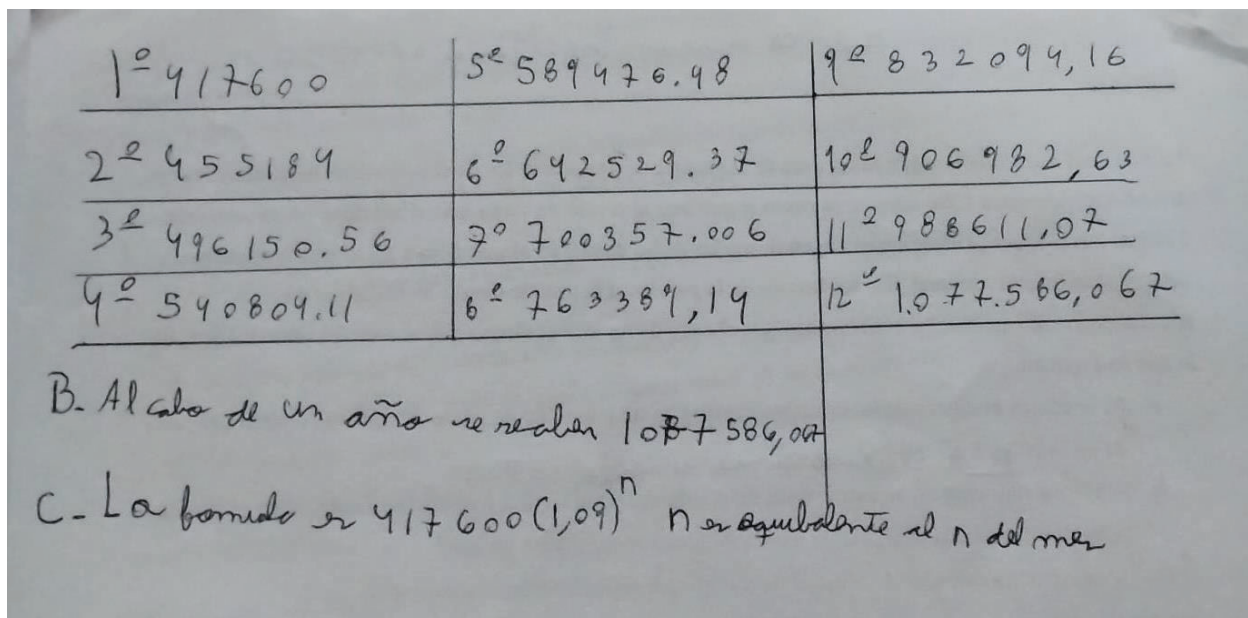 1º 417600 5º 589476.48 9º 832094,16
2º 455184 6º 642529.37 10º 906982,63
3º 496150.56 7º 700357.006 11º 988611,07
4º 540804.11 8º 763389,14 12º 1.077.586,067
B. Al cabo de un año se reciben 1077586,067
C. La formula es 417600(1,09)ⁿ n es equibalente al n del mes